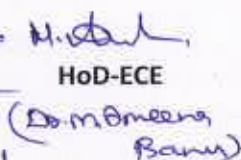 HoD-ECE
(Dr. M. Ameena
Banu)